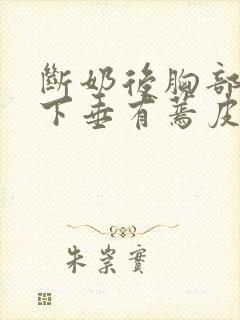 斷奶後胸部
下垂有蔫皮
朱崇實